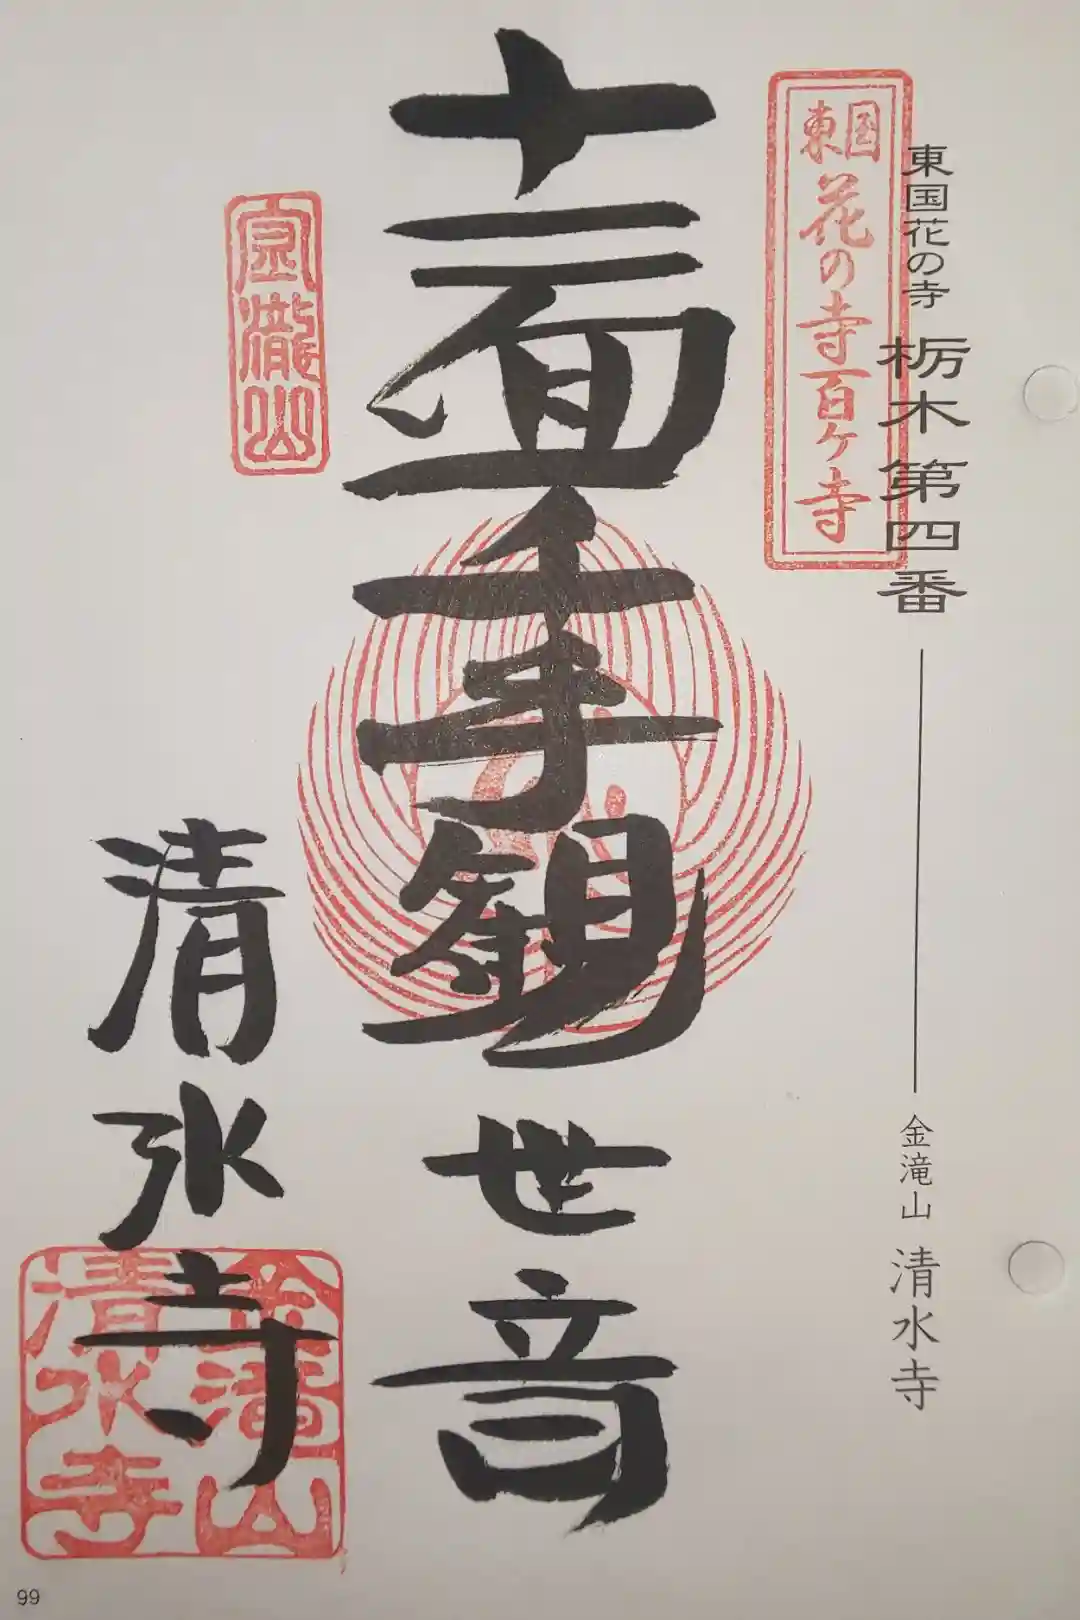 東国花の寺 栃木第四番 金滝山 清水寺
東国
花の寺百ヶ寺
十一面千手観世音
清水寺
金瀧山
清水寺
99